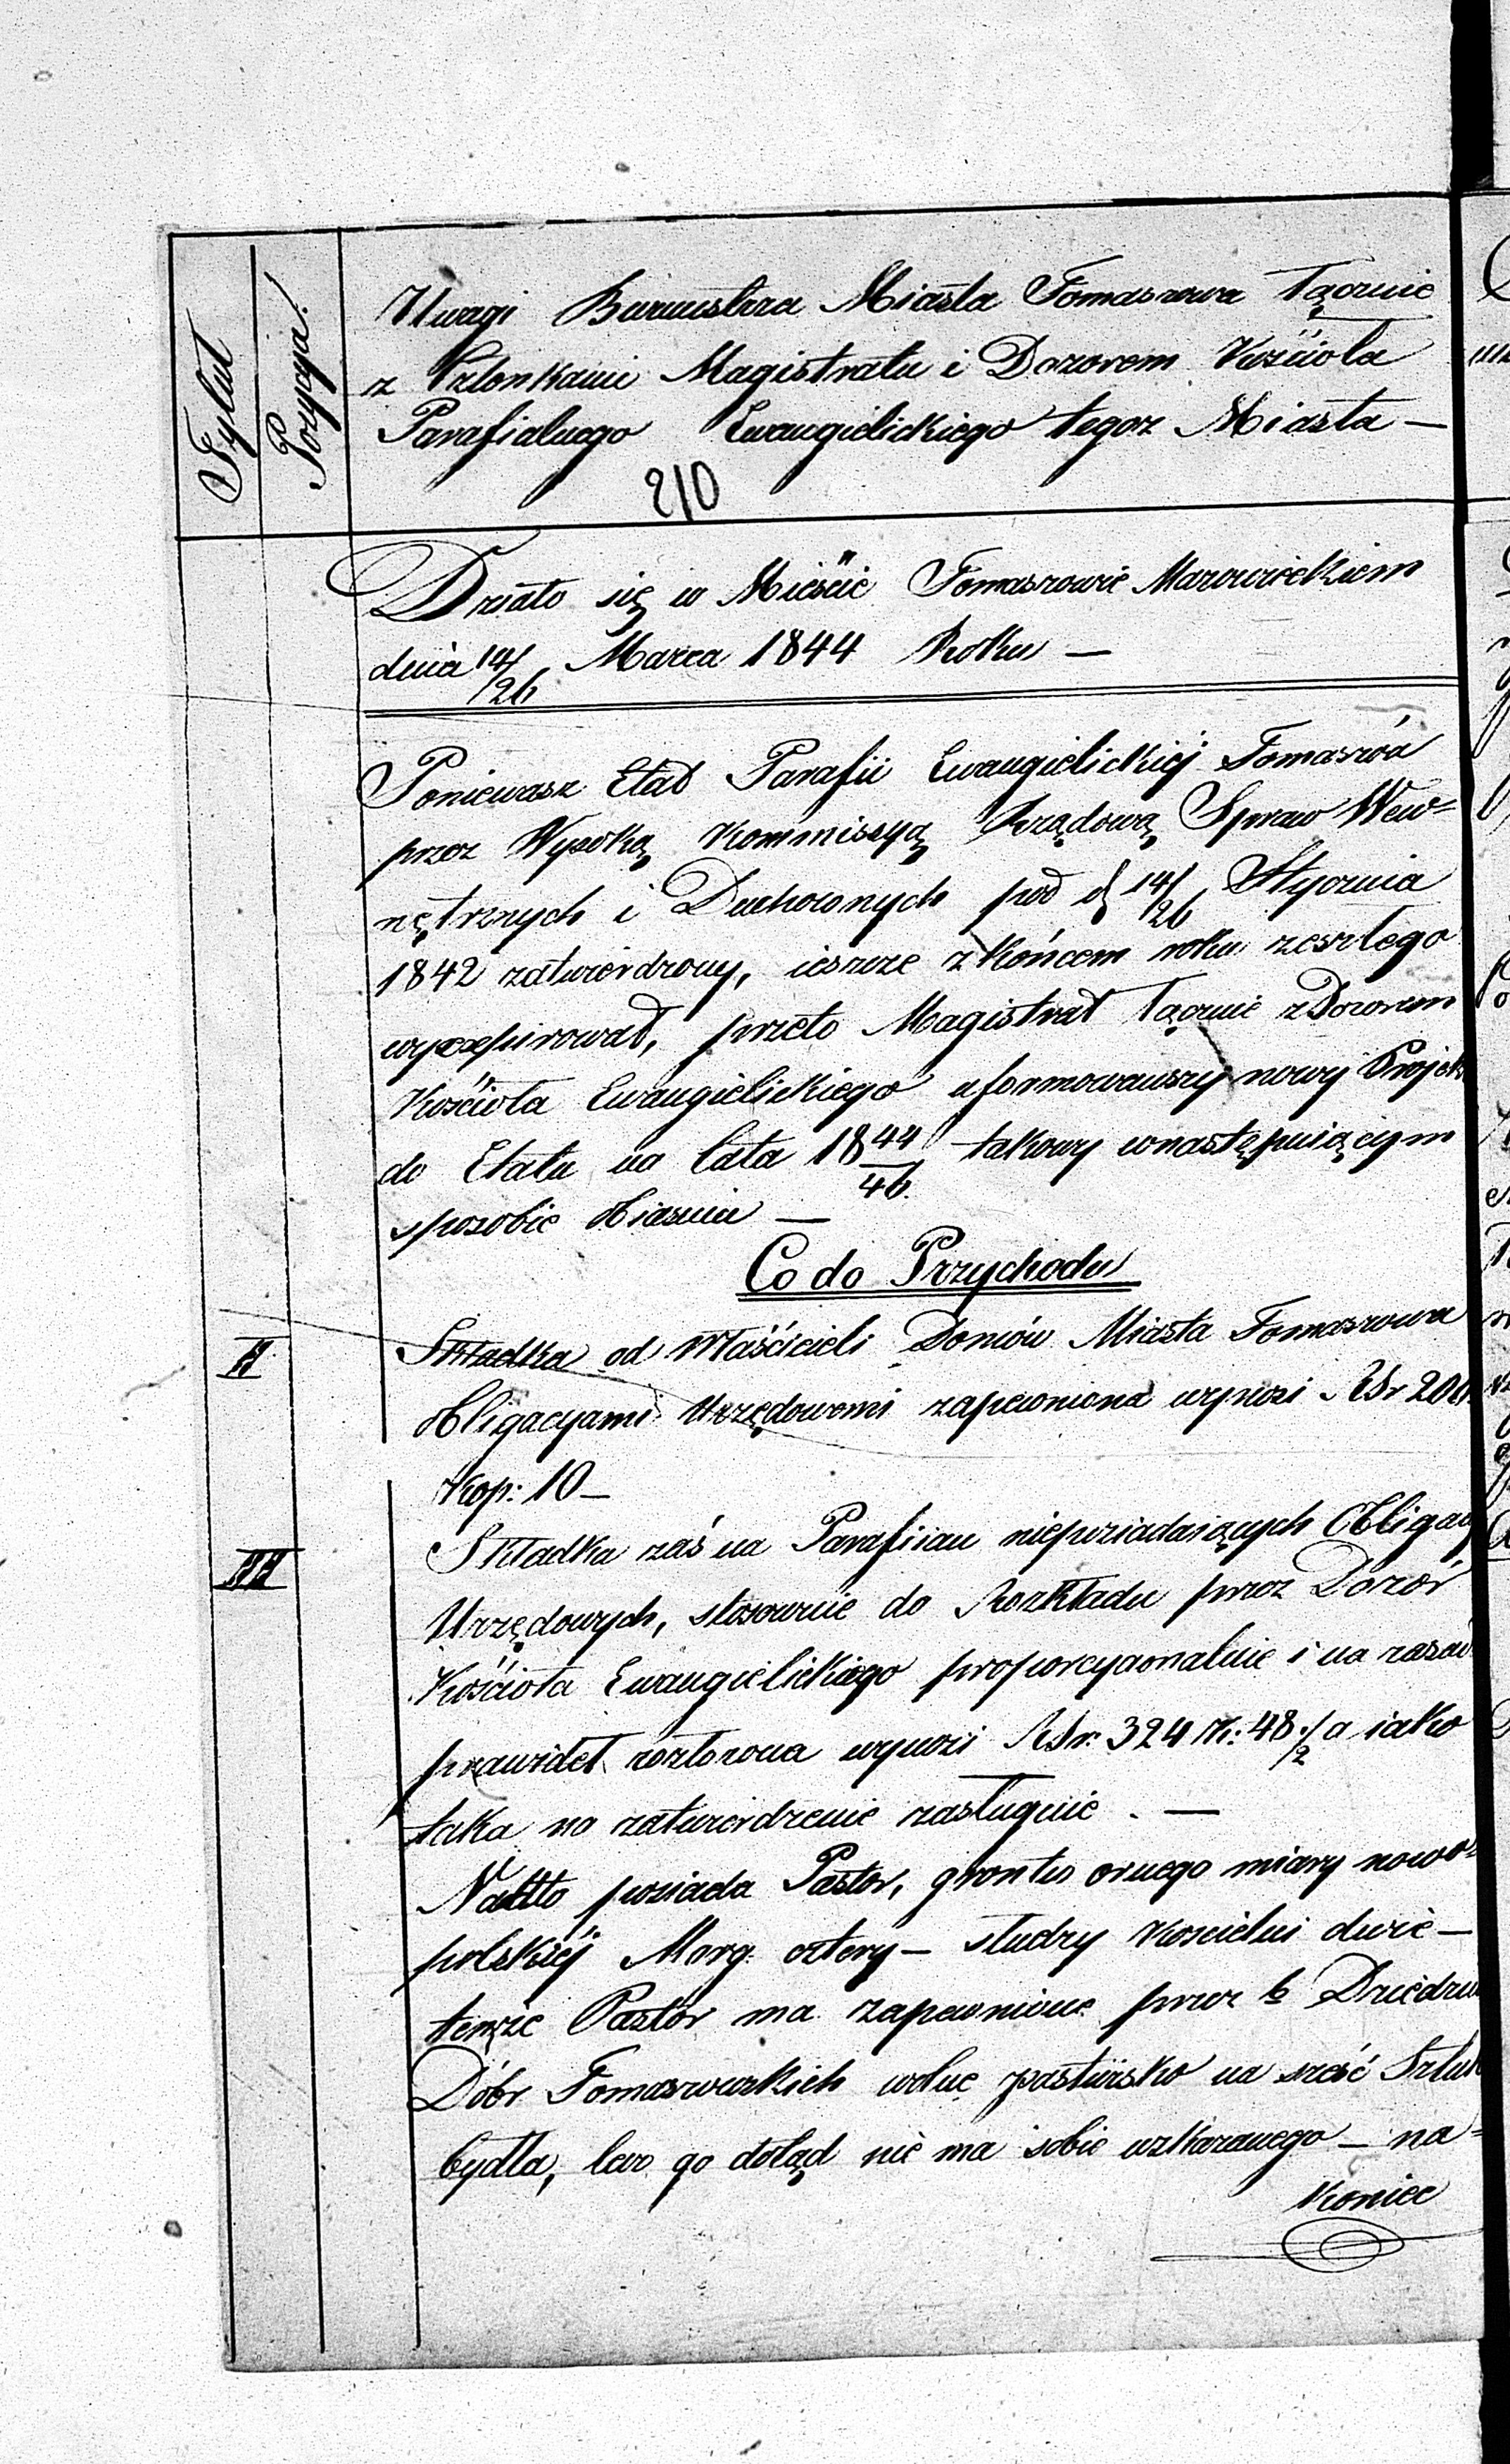 Tytuł
Pozycya.
Uwagi Burmistrza Miasta Tomaszowa łącznie
z Członkami Magistratu i Dozorem Kościoła
Parafialnego Ewangielickiego tegoz Miasta —
210
Działo się w Mieście Tomaszowie Mazowieckiem
dnia 14/26 Marca 1844 Roku —
Poniewasz Etat Parafii Ewangielickiéj Tomaszów
przez Wysoką Kommissyą Rządową Spraw Wew=
nętrznych i Duchownych pod d 14/26 Stycznia
1842 zatwierdzony, ieszcze z końcem roku zeszłego
wyexpirował, przeto Magistrat łącznie z Dozorem
Kościoła Ewangielickiego uformowawszy nowy Projekt
do Etatu na lata 1844/46. takowy w następuiącym
sposobie obiasnia —
Co do Przychodu
II
Składka od Właścicieli Domów Miasta Tomaszowa
Obligacyami Urzędowemi zapewniona wynosi RSr
Kop: 10 —
III
Składka zaś na Parafian nieposiadaiących
Urzędowych, stosownie do Rozkładu przez Dozór
Kościoła Ewangielickiego proporcyaonalnie i na
prawideł rozłozona wynosi RSr: 324 k: 48 1/2 a iako
taka na zatwierdzenie zasługuie. —
Nadto posiada Pastor, gruntu ornego miary nowo=
polskiéj Morg. cztery — słudzy Koscielni dwie —
tenże Pastor ma zapewnione przez b Dziedzica
Dóbr Tomaszowskich wolne pastwisko na sześć Sztuk
bydła, lecz go dotąd nie ma sobie wskazanego — na=
koniec